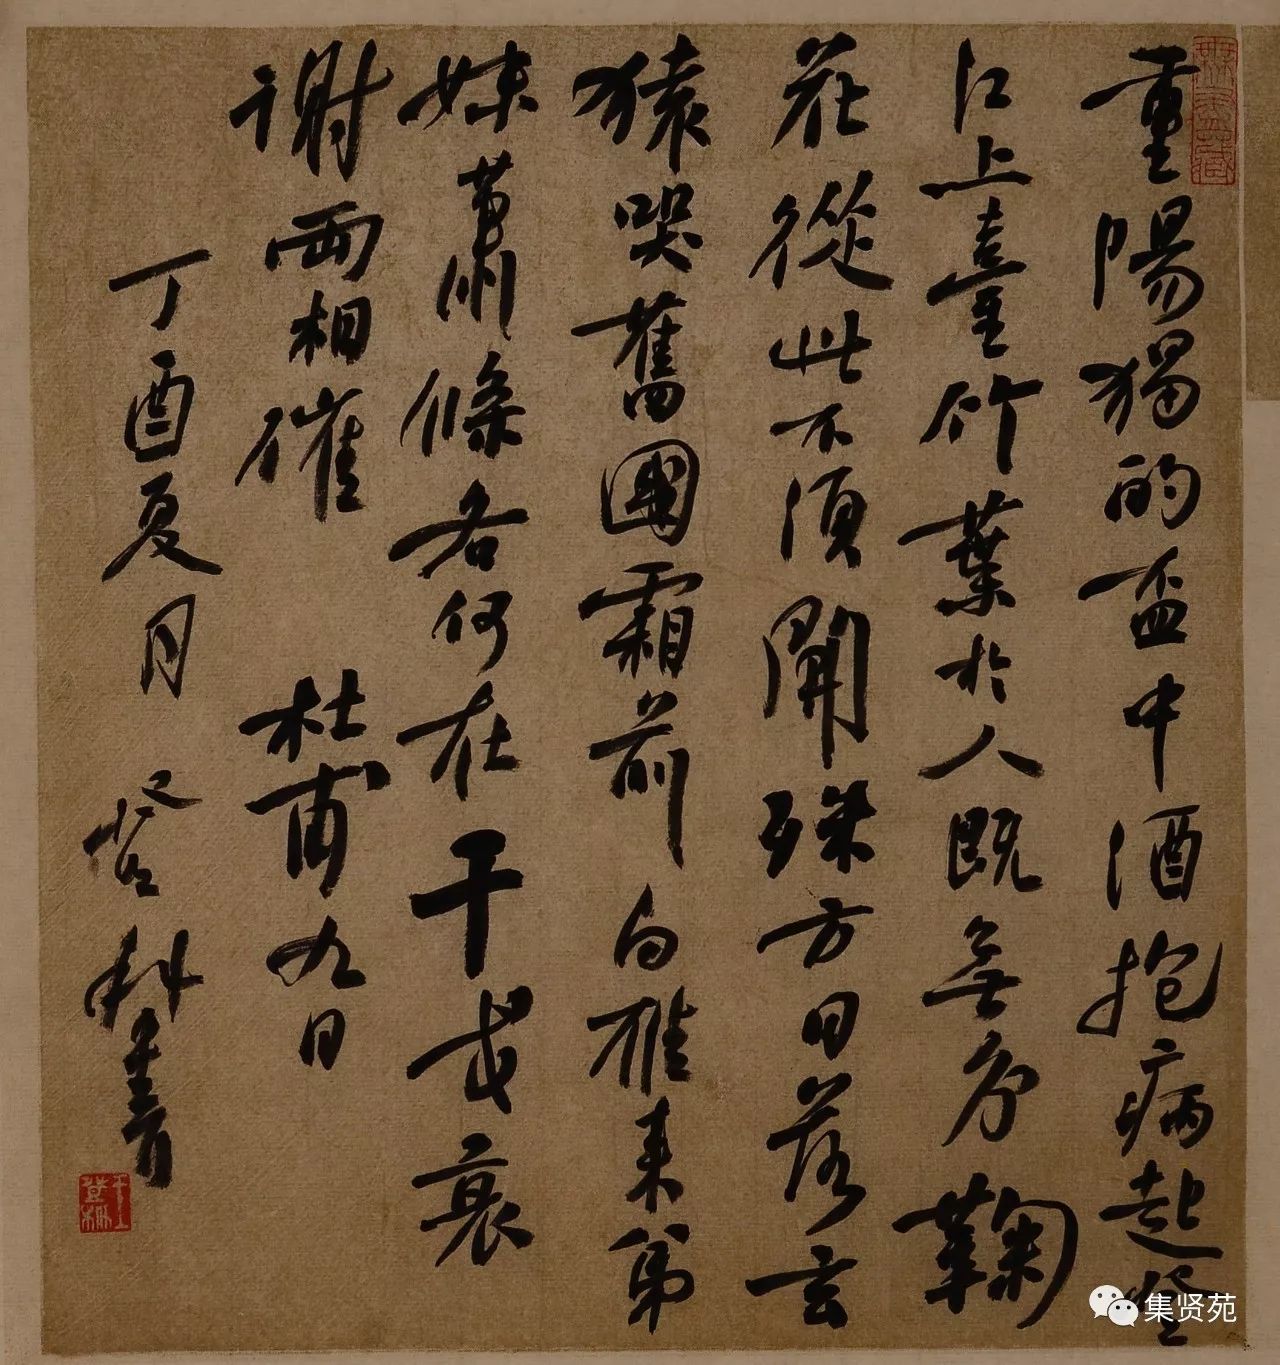 重陽獨酌盃中酒抱病起登
江上臺竹葉於人既無分鞠
花從此不須開殊方日落玄
猿哭舊國霜前白雁來弟
妹蕭條各何在干戈衰
謝兩相催 杜甫九日
丁酉夏月 登科書
集贤苑